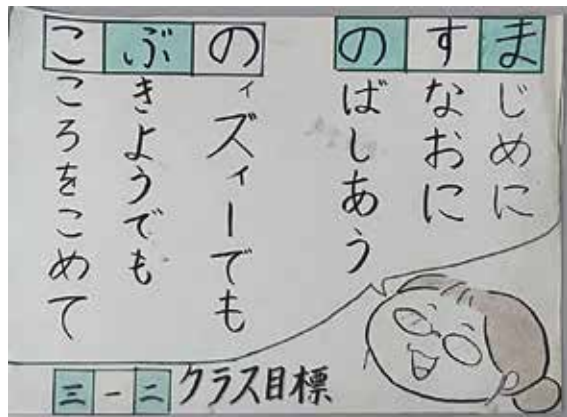 まじめに
すなおに
のばしあう
のィズィーでも
ぶきようでも
こころをこめて
三-二 クラス目標